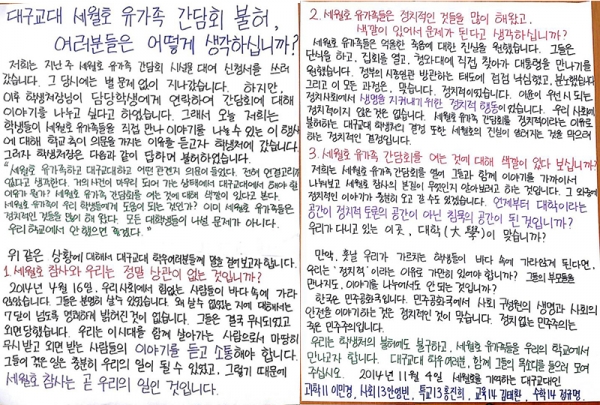 대구교대 세월호 유가족 간담회 불허,
여러분들은 어떻게 생각하십니까?
저희는 지난 주 세월호 유가족 간담회 시설물 대여 신청서를 쓰러
갔습니다. 그 당시에는 별 문제 없이 지나갔습니다. 하지만,
이후 학생처장님이 담당학생에게 연락하여 간담회에 대해
이야기를 나누고 싶다고 하였습니다. 그래서 오늘 저희는
학생들이 세월호 유가족들을 직접 만나 이야기를 나눌 수 있는 이 행사
에 대해 학교 측이 의문을 가지는 이유를 듣고자 학생처에 갔습니다.
그러자 학생처장은 다음과 같이 답하며 불허하였습니다.
"세월호 유가족하고 대구교대하고 어떤 관련지 의문이 들었다. 전혀 연결고리가
없다고 생각한다. 거의 사건이 마무리 되어 가는 상태에서 대구교대에서 해야 할
이유가 뭔가? 세월호 유가족 간담회를 여는 것에 대해 색깔이 있다고 본다.
세월호 유가족이 우리 학생들에게 도움이 되는 것인가? 이미 세월호 유가족들은
정치적인 것들을 많이 해 왔다. 모든 대학생들이 나설 문제가 아니다.
우리 학교에서 안 했으면 좋겠다."
위 같은 상황에 대해서 대구교대 학우여러분들께 몇 가지 질문을 해보고자 합니다.
1. 세월호 참사와 우리는 정말 상관이 없는 것입니까?
2014년 4월 16일, 우리 사회에서 힘없는 사람들이 바다 속에 가라
앉았습니다. 그들은 분명히 살 수 있었습니다. 왜 살 수 없었는 지에 대해서는
7달이 넘도록 명쾌하게 밝혀진 것이 없습니다. 그들은 결국 무시되었고
외면당했습니다. 우리는 이 시대를 함께 살아가는 사람으로서 마땅히
무시 받고 외면 받는 사람들의 이야기를 듣고 소통해야 합니다.
그들이 겪은 일은 충분히 우리의 일이 될 수 있었고, 그렇기 때문에
세월호 참사는 곧 우리의 일인 것입니다.
2. 세월호 유가족들은 정치적인 것들을 많이 해왔고,
색깔이 있어서 문제가 된다고 생각하십니까?
세월호 유가족들은 억울한 죽음에 대한 진실을 원했습니다. 그들은
단식을 하고, 집회를 열고, 청와대에 직접 찾아가 대통령을 만나기를
원했습니다. 정부의 시종일관 방관하는 태도에 점점 낙심했고, 분노했습니다.
그리고 이 모든 과정은, 맞습니다, 정치적이었습니다. 이윤이 우선시 되는
정치사회에서 생명을 지켜내기 위한 정치적 행동이었습니다. 우리 사회에
정치적이지 않은 것은 없습니다. 세월호 유가족 간담회를 정치적이라는 이유로
불허하는 대구교대 학생처의 결정 또한 세월호의 진실이 알려지는 것을 막으려
하는 정치적인 결정입니다.
3. 세월호 유가족 간담회를 여는 것에 대해 색깔이 있다 보십니까?
저희는 세월호 유가족 간담회를 열어 그들과 함께 이야기를 가까이서
나눠보고 세월호 참사의 본질이 무엇인지 알아보려고 하는 것입니다. 그 와중에
정치적인 이야기가 충분히 오고 갈 수도 있겠습니다. 언제부터 대학이라는
공간이 정치적 토론의 공간이 아닌 침묵의 공간이 된 것입니까?
우리가 다니고 있는 이곳, 대학(大學)이 맞습니까?
만약, 훗날 우리가 가르치는 학생들이 바다 속에 가라앉게 된다면,
우리는 '정치적'이라는 이유로 가만히 있어야 합니까? 그들의 부모들을
만나지도, 이야기를 나누어서도 안 되는 것입니까?
한국은 민주공화국입니다. 민주공화국에서 사회 구성원의 생명과 사회의
안전을 이야기하는 것은 정치적인 것이 맞습니다. 정치없는 민주주의는
죽은 민주주의입니다.
우리는 학생처의 불허에도 불구하고, 세월호 유가족들을 우리의 학교에서
만나고자 합니다. 대구교대 학우여러분, 함께 그들의 목소리를 들으러 모여
주십시오. 2014년 11월 4일 세월호를 기억하는 대구교대인
과학11 이민경, 사회13 안영빈, 특교13 홍진희, 교육14 김태환, 수학14 정규명